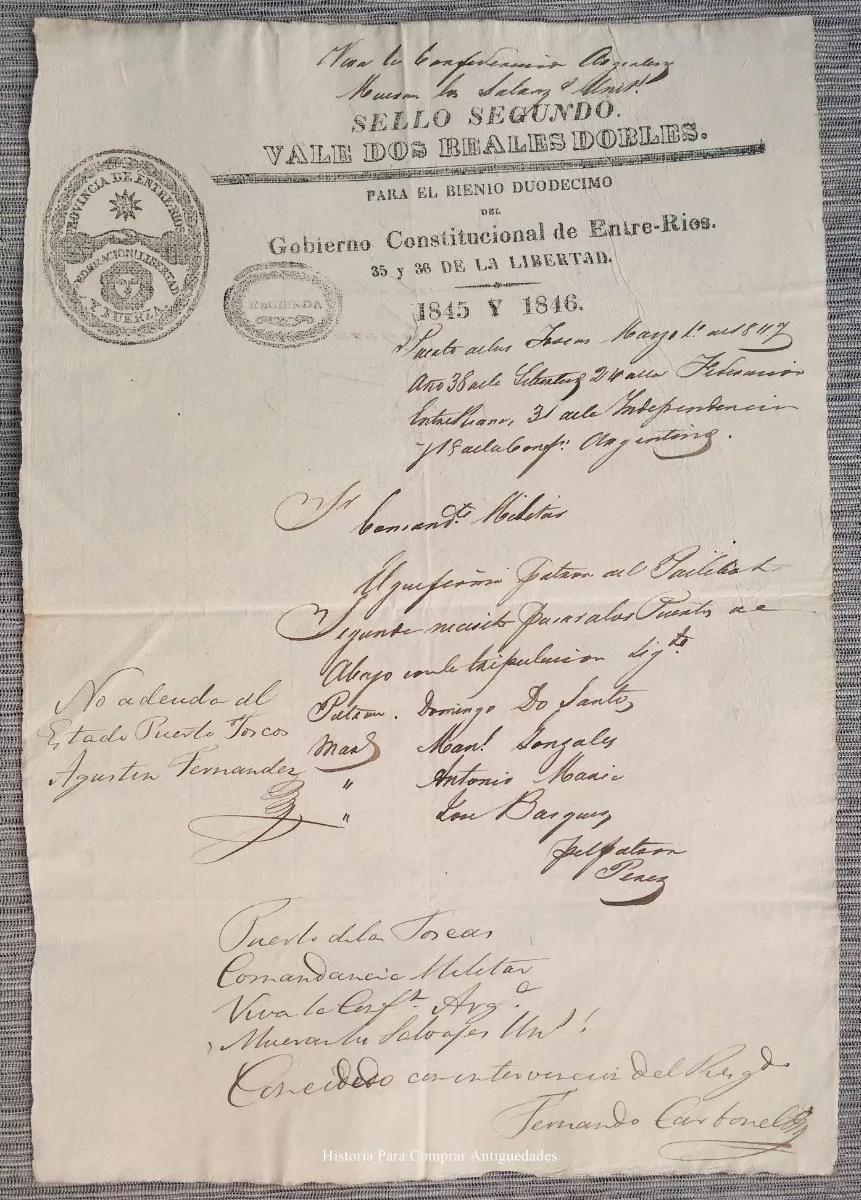 Viva la Confederacion Argentina
Mueran los Salvag.s Unit.s
SELLO SEGUNDO.
VALE DOS REALES DOBLES.
PARA EL BIENIO DUODECIMO
DEL
Gobierno Constitucional de Entre-Rios.
35 y 36 DE LA LIBERTAD.
1845 Y 1846.
PROVINCIA DE ENTRE RIOS
FEDERACION LIBERTAD
Y FUERZA.
HACIENDA
Puerto delas Toscas Mayo 1º de 1847
Año 38 dela Libertad 24 dela Federacion
Entre Riana, 31 dela Independencia
y 18 dela Conf.n Argentina.
Sr Comand.te Militar
El que firma patron del
Segundo necesita pasar alos Puertos de
Abajo conla tripulacion sig.te
Patron. Domingo Do Santos
Man.l Gonzales
" Antonio Maria
" Jose Basques
pel patron
Perez
No adeuda al
Estado Puerto Toscas
Agustin Fernandez
Puerto delas Toscas
Comandancia Militar
Viva la Conf.n Arg.a
Mueran los Salvajes Un.s!
Concedido con intervencion del Resg.do
Fernando Carbonell
Historia Para Comprar Antiguedades